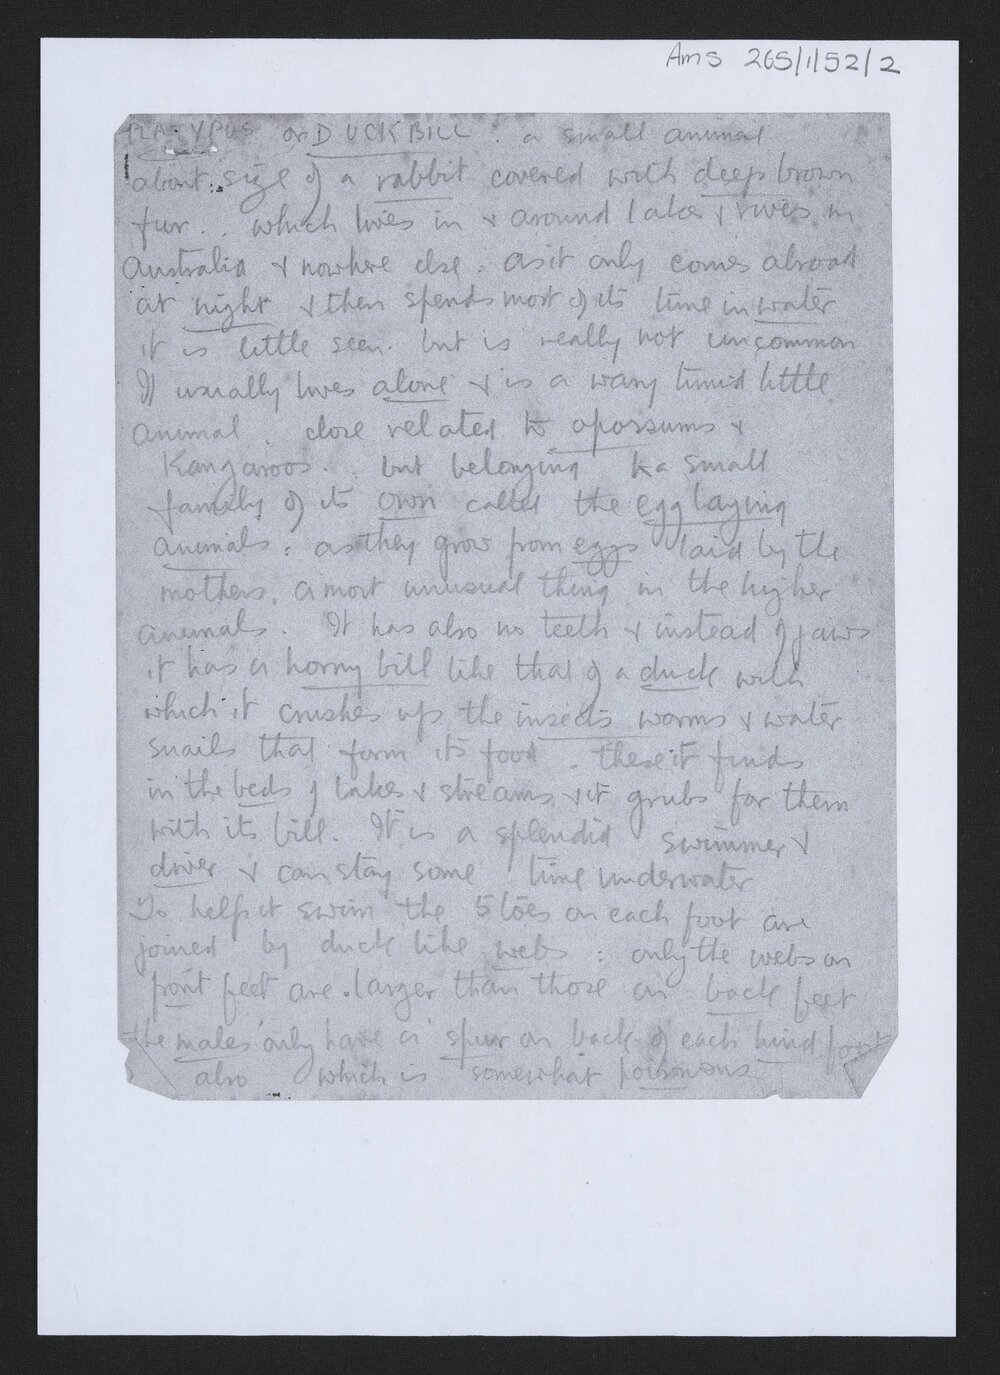 Ams 265/1/52/2
PLATYPUS or DUCKBILL : a small animal
about size of a rabbit covered with deep brown
fur . . which lives in & around lakes & rivers in
Australia & nowhere else . as it only comes abroad
at night & then spends most of its time in water
it is little seen . but is really not uncommon
It usually lives alone & is a wary timid little
animal . close related to opossums &
Kangaroos . . but belonging to a small
family of its own called the egg laying
animals : as they grow from eggs laid by the
mothers . a most unusual thing in the higher
animals . It has also no teeth & instead of jaws
it has a horny bill like that of a duck with
which it crushes up the insects worms & water
snails that form its food . these it finds
in the beds of lakes & streams & it grubs for them
with its bill . It is a splendid swimmer &
diver & can stay some time underwater
To help it swim the 5 toes on each foot are
joined by duck like webs : only the webs on
front feet are larger than those on back feet
the males only have a spur on back of each hind foot
also which is somewhat poisonous